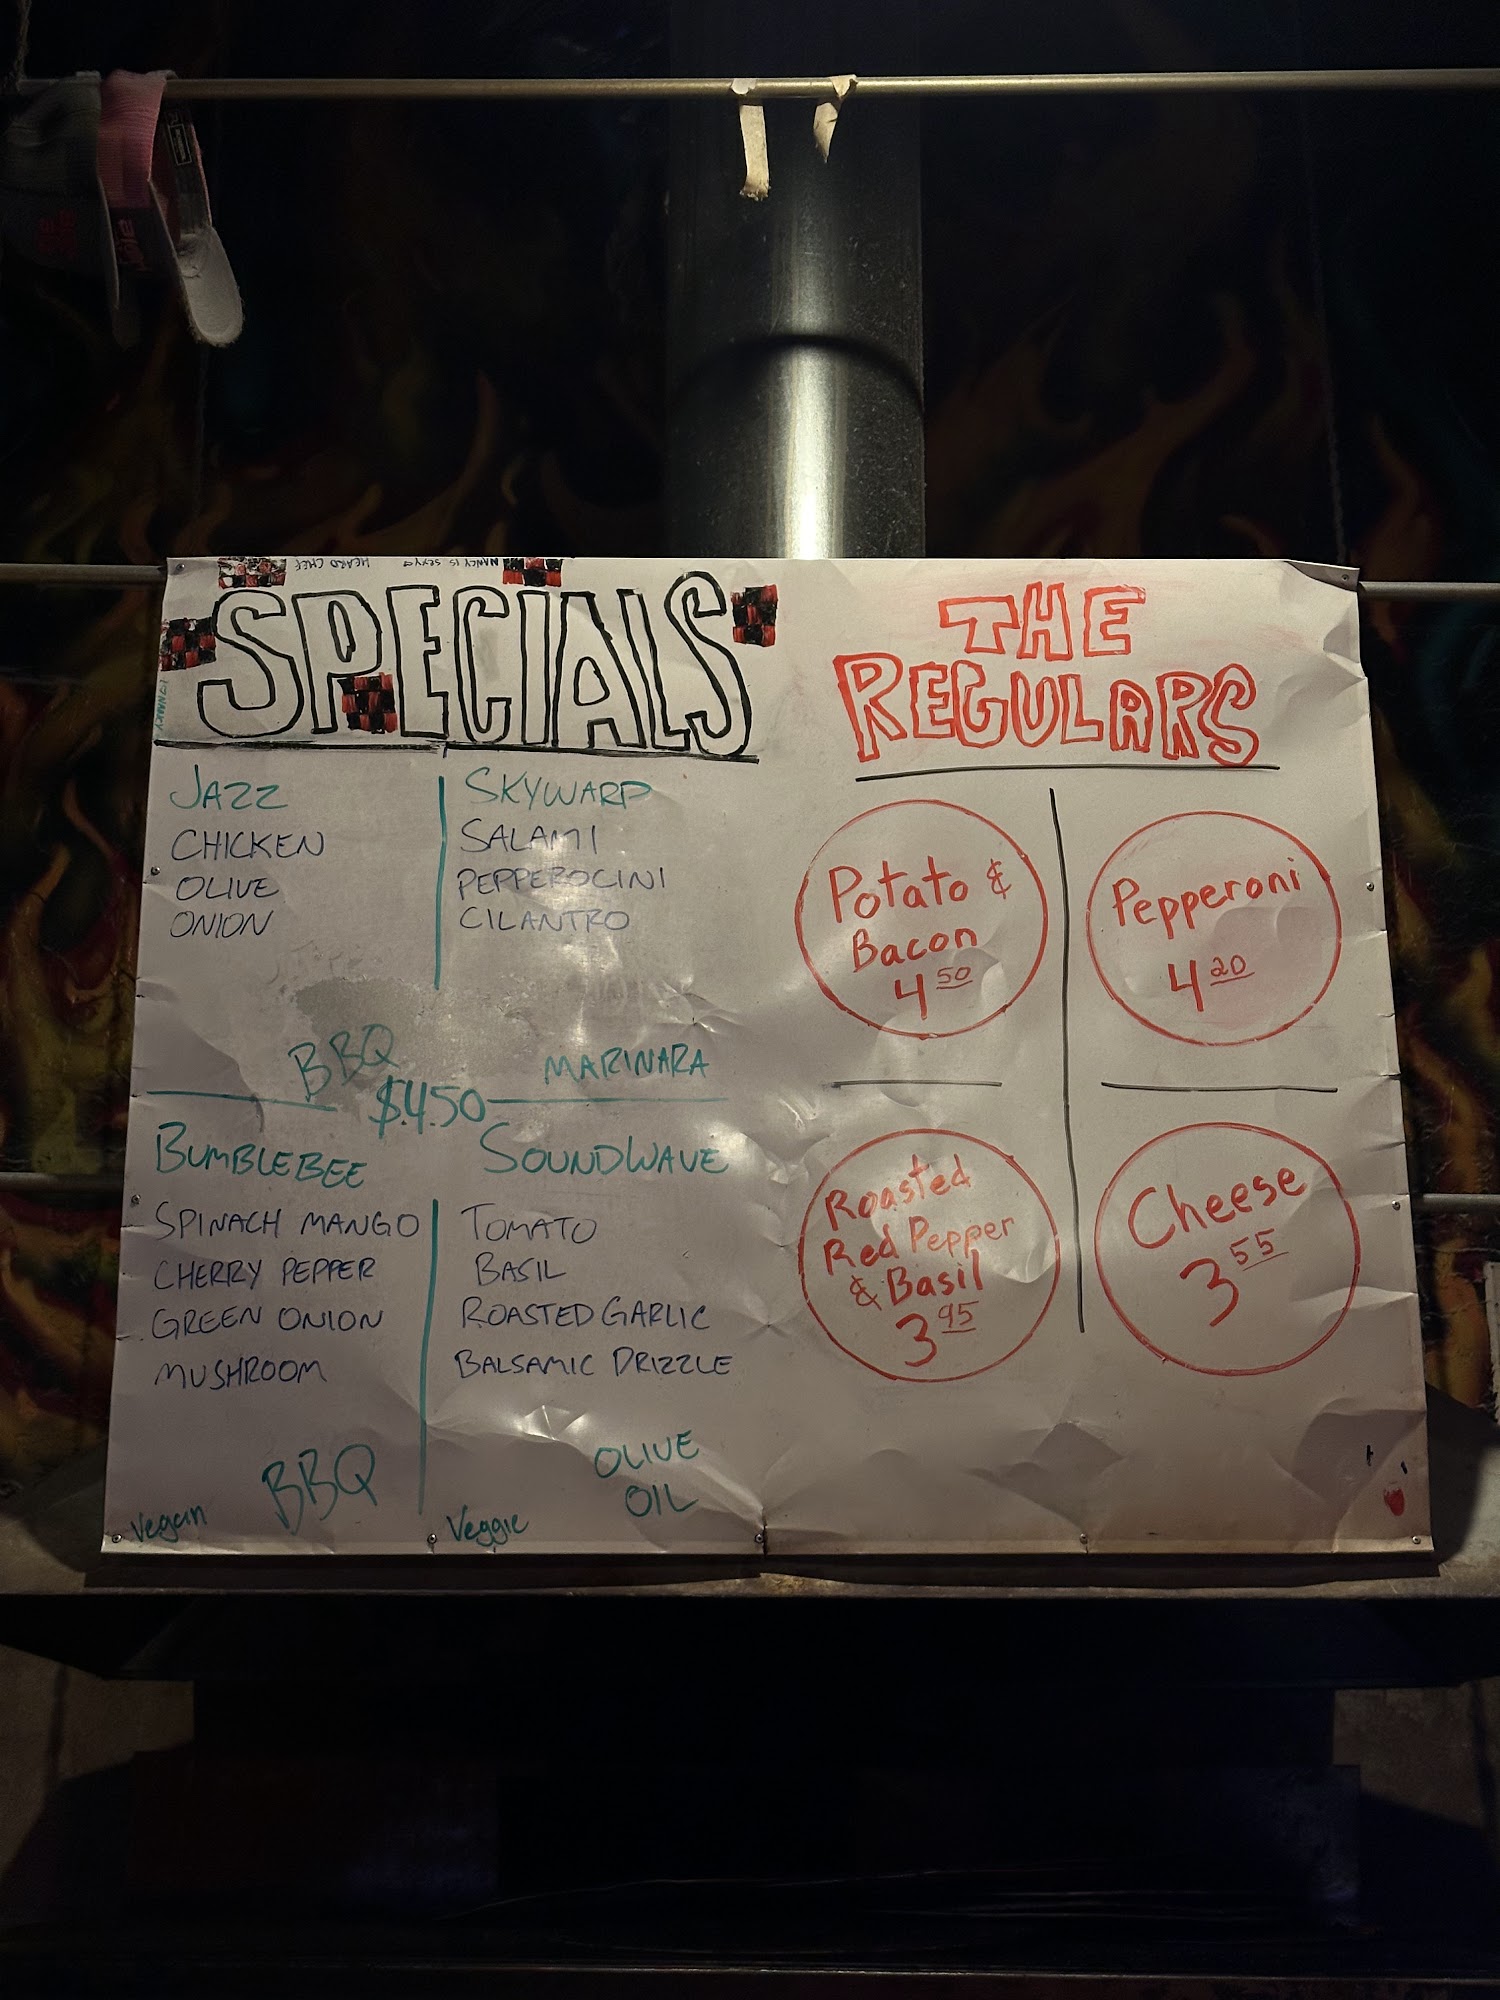 HEARD CHEF
NANCY IS SEXY
SPECIALS
JAZZ
CHICKEN
OLIVE
ONION
BBQ
SKYWARP
SALAMI
PEPPEROCINI
CILANTRO
MARINARA
$4.50
BUMBLEBEE
SPINACH MANGO
CHERRY PEPPER
GREEN ONION
MUSHROOM
BBQ
Vegan
SOUNDWAVE
TOMATO
BASIL
ROASTED GARLIC
BALSAMIC DRIZZLE
OLIVE
OIL
Veggie
THE
REGULARS
Potato &
Bacon
4 50
Pepperoni
4 20
Roasted
Red Pepper
& Basil
3 95
Cheese
3 55